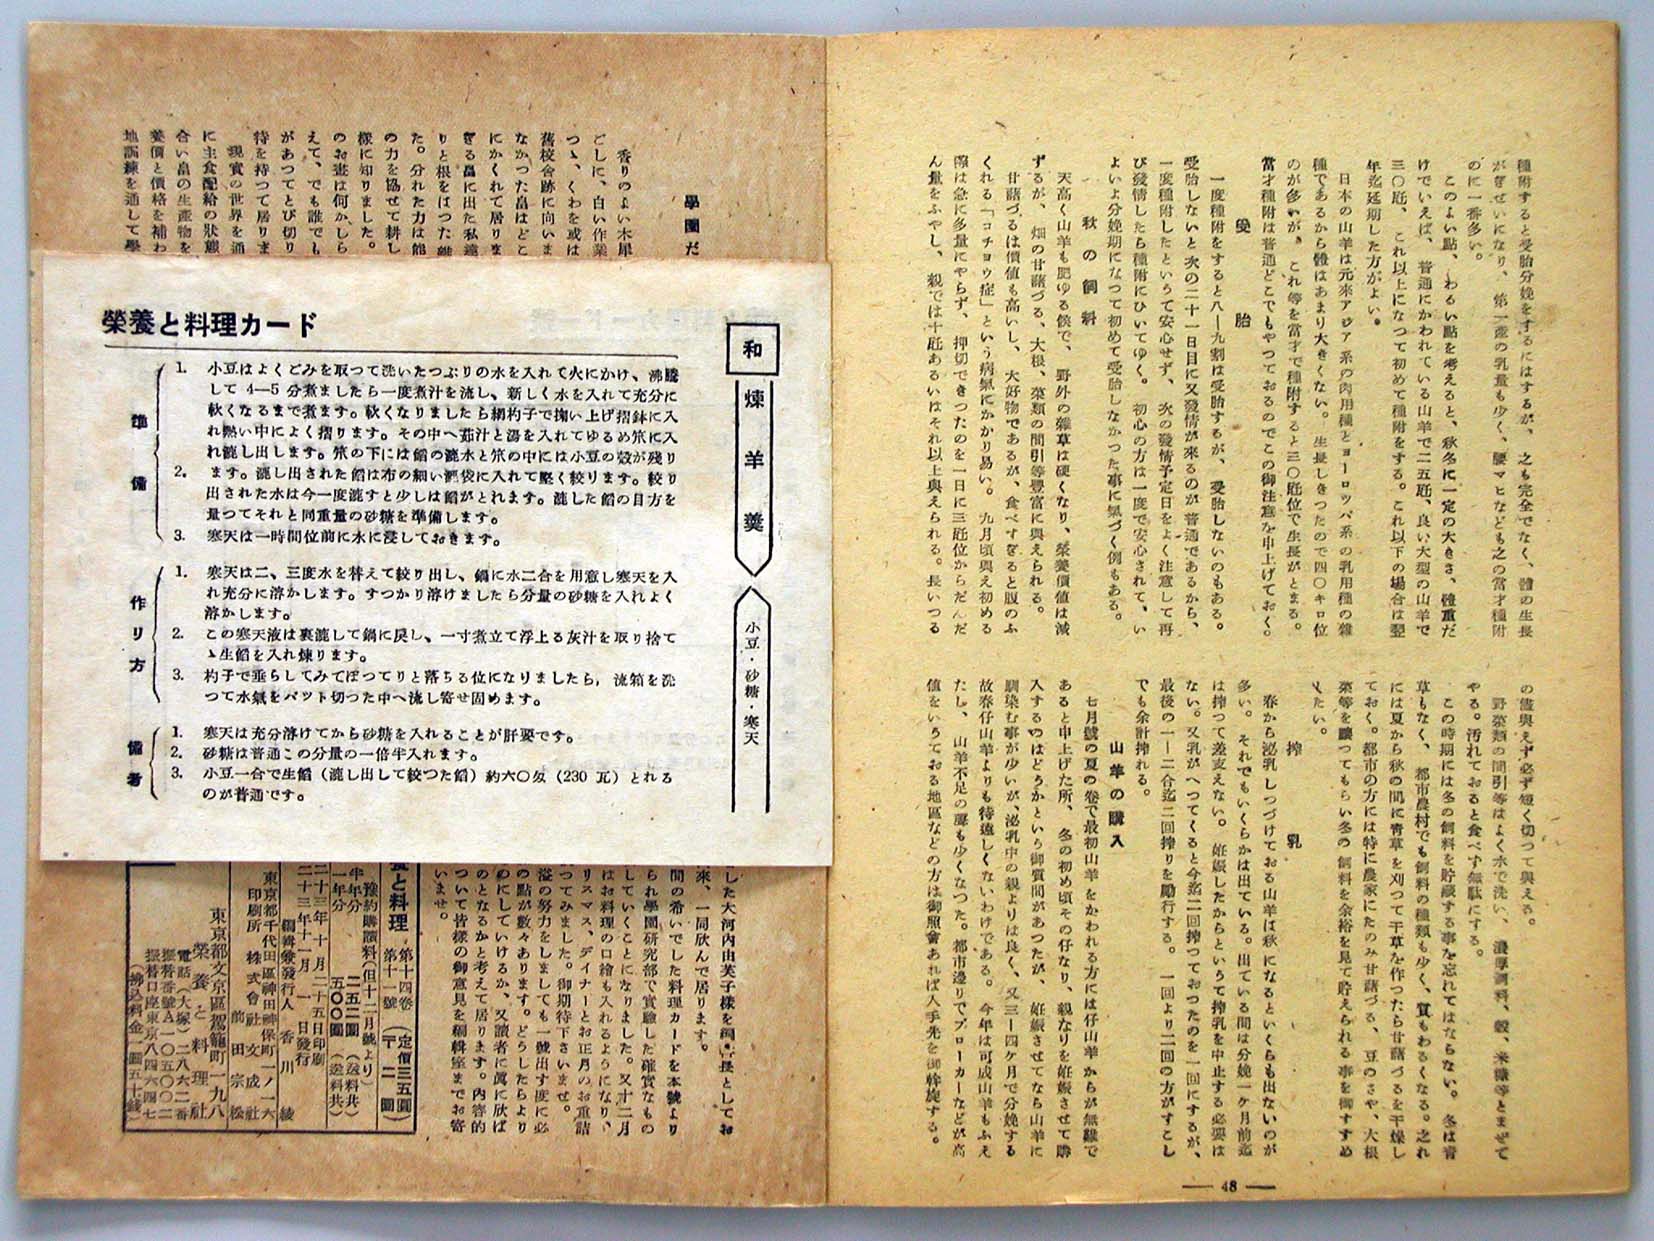 種附すると受胎分娩をするにはするが、之も完全でなく、體の生長
がぎせいになり、第一産の乳量も少く、腰マヒなども之の當才種附
のに一番多い。
このよい點、わるい點を考えると、秋冬に一定の大きさ、體重だ
けでいえば、普通にかわれている山羊で二五瓩、良い大型の山羊で
三〇瓩、これ以上になつて初めて種附をする。これ以下の場合は翌
年迄延期した方がよい。
日本の山羊は元來アジア系の肉用種とヨーロッパ系の乳用種の雜
種であるから體はあまり大きくない。生長しきつたので四〇キロ位
のが多いが、これ等を當才で種附すると三〇瓩位で生長がとまる。
當才種附は普通どこでもやつておるのでこの御注意を申上げておく。
受胎
一度種附をすると八―九割は受胎するが、受胎しないのもある。
受胎しないと次の二十一日目に又發情が來るのが普通であるから、
一度種附したというて安心せず、次の發情予定日をよく注意して再
び發情したら種附にひいてゆく。初心の方は一度で安心されて、い
よいよ分娩期になつて初めて受胎しなかつた事に氣づく例もある。
秋の飼料
天高く山羊も肥ゆる候で、野外の雜草は硬くなり、榮養價値は減
ずるが、畑の甘藷づる、大根、菜類の間引等豐富に與えられる。
甘藷づるは價値も高いし、大好物であるが、食べすぎると腹のふ
くれる「コチョウ症」という病氣にかかり易い。九月頃與え初める
際は急に多量にやらず、押切できつたのを一日に三瓩位からだんだ
ん量をふやし、親では十瓩あるいはそれ以上與えられる。長いつる
の儘與えず必ず短く切つて與える。
野菜類の間引等はよく水で洗い、濃厚飼料、穀、米糠等とまぜて
やる。汚れておると食べず無駄にする。
この時期には冬の飼料を貯藏する事を忘れてはならない。冬は青
草もなく、都市農村でも飼料の種類も少く、質もわるくなる。之れ
には夏から秋の間に青草を刈つて干草を作つたら甘藷づるを干燥し
ておく。都市の方には特に農家にたのみ甘藷づる、豆のさや、大根
葉等を讓つてもらい冬の飼料を余裕を見て貯えられる事を御すすめ
したい。
搾乳
春から泌乳しつづけておる山羊は秋になるといくらも出ないのが
多い。それでもいくらかは出ている。出ている間は分娩一ケ月前迄
は搾つて差支えない。姙娠したからというて搾乳を中止する必要は
ない。又乳がへつてくると今迄二回搾つておつたのを一回にするが、
最後の一―二合迄二回搾りを勵行する。一回より二回の方がすこし
でも余計搾れる。
山羊の購入
七月號の夏の卷で最初山羊をかわれる方には仔山羊からが無難で
あると申上げた所、冬の初め頃その仔なり、親なりを姙娠させて購
入するのはどうかという御質問があつたが、姙娠させてなら山羊に
馴染む事が少いが、泌乳中の親よりは良く、又三―四ケ月で分娩する
故春仔山羊よりも待遠しくないわけである。今年は可成山羊もふえ
たし、山羊不足の聲も少くなつた。都市邊りでブローカーなどが高
値をいうておる地區などの方は御照會あれば人手先を御斡旋する。
― 48 ―
學園だ
香りのよい木犀
どしに、白い作業
つゝ、くわを或は
舊校舍跡に向いま
なかつた畠はどこ
にかくれて居りま
ぎる畠に出た私達
りと根をはつた雜
た。分れた力は能
の力を協せて耕し
樣に知りました。
のお晝は何かしら
えて、でも誰でも
があつてとび切り
特を持つて居りま
現實の世界を通
に主食配給の狀態
合い畠の生産物を
養價と價格を補わ
地訓練を通して學
榮養と料理カード
和
煉羊羹
小豆・砂糖・寒天
準備
1. 小豆はよくごみを取つて洗いたつぷりの水を入れて火にかけ、沸騰
して 4―5 分煮ましたら一度煮汁を流し、新しく水を入れて充分に
軟くなるまで煮ます。軟くなりましたら網杓子で掬い上げ摺鉢に入
れ熱い中によく摺ります。その中へ茹汁と湯を入れてゆるめ笊に入
れ漉し出します。笊の下には餡の漉水と笊の中には小豆の殼が殘り
2. ます。漉し出された餡は布の細い漉袋に入れて堅く絞ります。絞り
出された水は今一度漉すと少しは餡がとれます。漉した餡の目方を
量つてそれと同重量の砂糖を準備します。
3. 寒天は一時間位前に水に浸しておきます。
作り方
1. 寒天は二、三度水を替えて絞り出し、鍋に水二合を用意し寒天を入
れ充分に溶かします。すつかり溶けましたら分量の砂糖を入れよく
溶かします。
2. この寒天液は裏漉して鍋に戻し、一寸煮立て浮上る灰汁を取り捨て
ゝ生餡を入れ煉ります。
3. 杓子で垂らしてみてぽつてりと落ちる位になりましたら, 流箱を洗
つて水氣をバツト切つた中へ流し寄せ固めます。
備考
1. 寒天は充分溶けてから砂糖を入れることが肝要です。
2. 砂糖は普通この分量の一倍半入れます。
3. 小豆一合で生餡（漉し出して絞つた餡）約六〇匁（230 瓦）とれる
のが普通です。
した大河内由芙子樣を編 長としてお
來、一同欣んで居ります。
間の希いでした料理カードを本號より
られ學園研究部で實驗した確實なもの
していくことになりました。又十二月
はお料理の口繪も入れるようになり、
リスマス、デイナーとお正月のお重詰
つてみました。御期待下さいませ。
溢の努力をしましても一號出す度に必
の點が數々あります。どうしたらより
のにしていけるか、又讀者に眞に欣ば
のとなるかと考えて居ります。内容的
ついて皆樣の御意見を編輯室までお寄
いませ。
養と料理
第十四卷
第十一號
（定價三五圓）
（〒二圓）
豫約購讀料（但十二月號より）
半年分 二五二圓（送料共）
一年分 五〇〇圓（送料共）
二十三年十月二十五日印刷
二十三年十一月一日發行
編輯兼發行人 香川綾
東京都千代田區神田神保町一ノ一六
印刷所 株式會社文成社
前田宗松
東京都文京區駕籠町一九八
榮養と料理社
電話（大塚）二八六二番
振替番號A一〇五〇〇二
振替口座東京八四六四七
（拂込料金一圓五十錢）